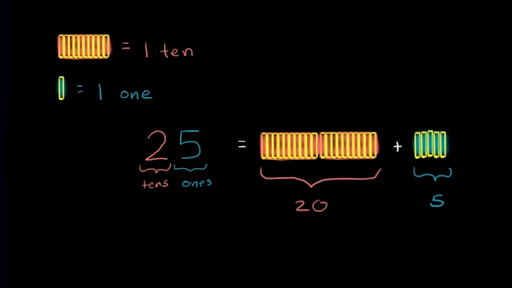 = 1 ten
= 1 one
25 = +
tens ones
20 5